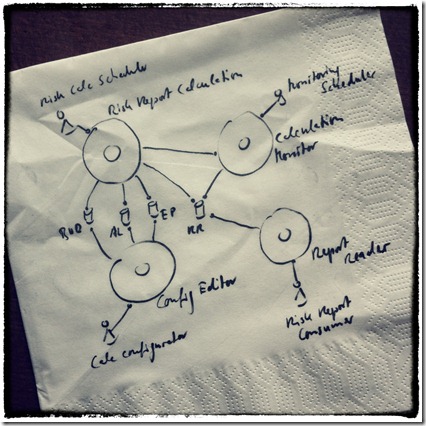 Risk Calc Scheduler
Risk Report Calculation
Monitoring
Scheduler
Calculation
Monitor
AL
EP
RR
Config Editor
Report
Reader
Calc Configurator
Risk Report
Consumer